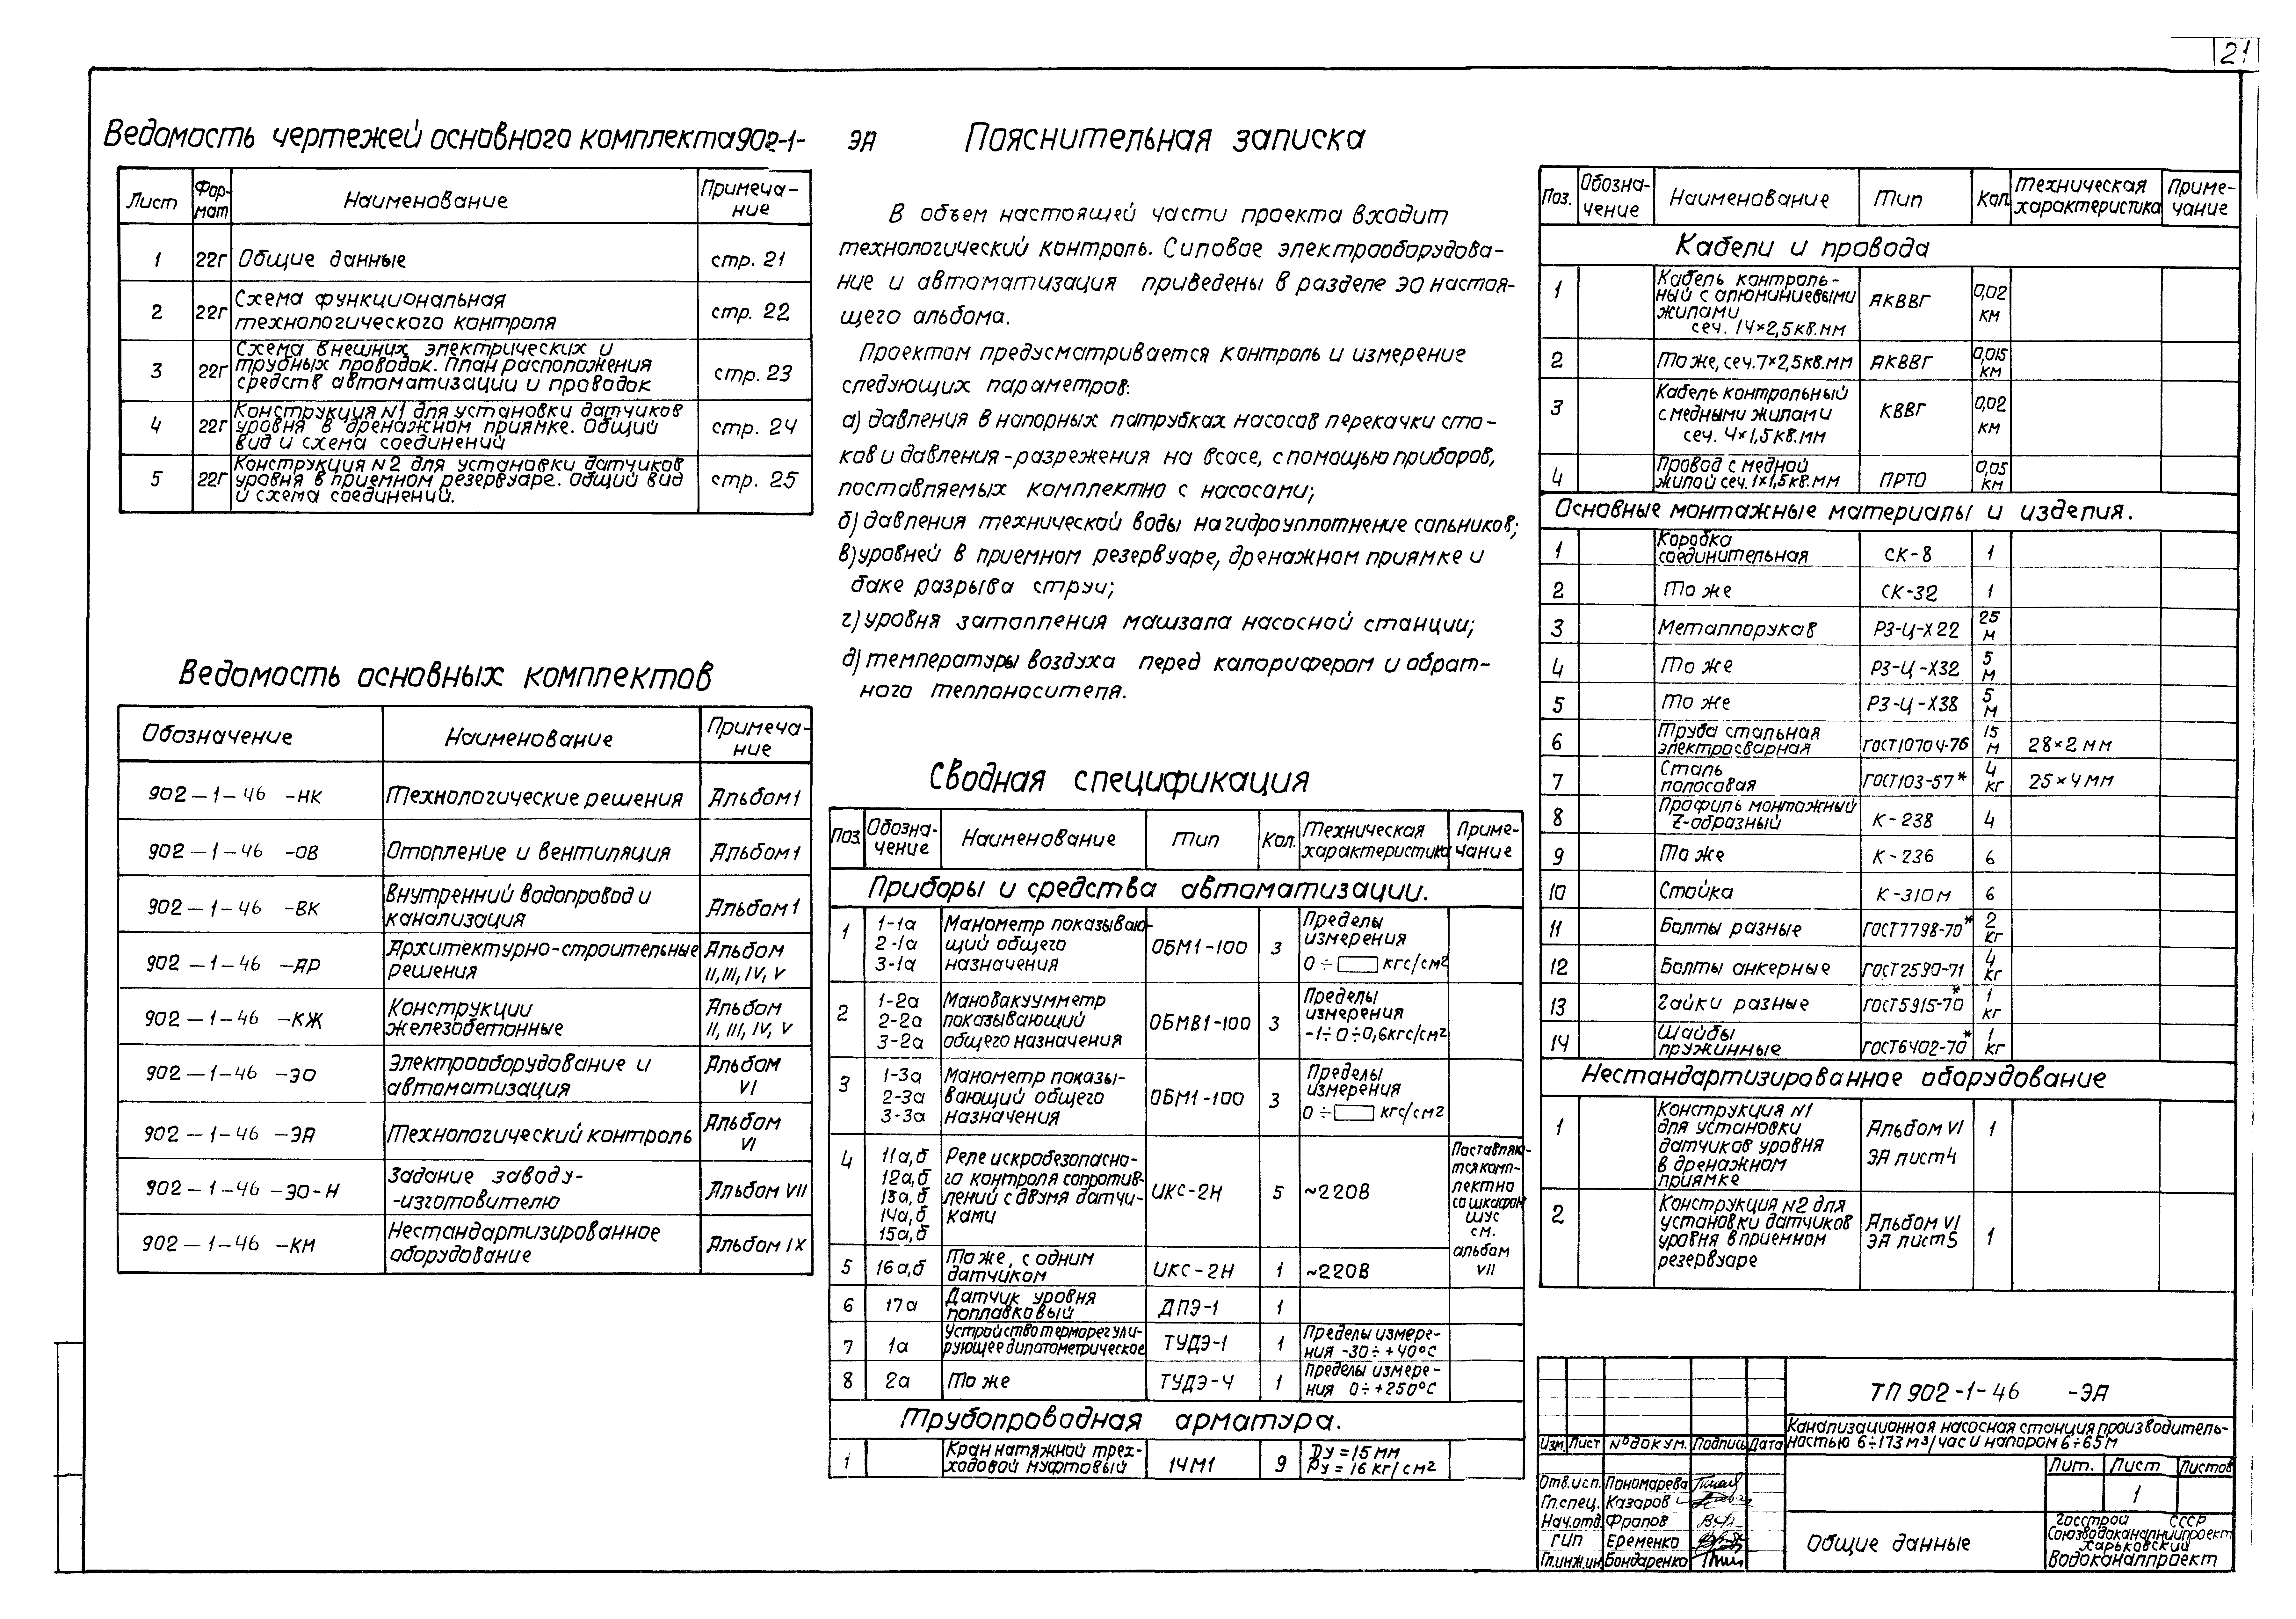 21
Ведомость чертежей основного комплекта 902-1- ЭА
Лист Фор-мат Наименование Примеча-ние
1 22г Общие данные стр. 21
2 22г Схема функциональная
технологического контроля стр. 22
3 22г Схема внешних электрических и
трубных проводок. План расположения
средств автоматизации и проводок стр. 23
4 22г Конструкция N1 для установки датчиков
уровня в дренажном приямке. Общий
вид и схема соединений стр. 24
5 22г Конструкция N2 для установки датчиков
уровня в приемном резервуаре. Общий вид
и схема соединений. стр. 25
Ведомость основных комплектов
Обозначение Наименование Примеча-ние
902-1-46 -НК Технологические решения Альбом I
902-1-46 -ОВ Отопление и вентиляция Альбом I
902-1-46 -ВК Внутренний водопровод и
канализация Альбом I
902-1-46 -АР Архитектурно-строительные
решения Альбом II, III, IV, V
902-1-46 -КЖ Конструкции
железобетонные Альбом II, III, IV, V
902-1-46 -ЭО Электрооборудование и
автоматизация Альбом VI
902-1-46 -ЭА Технологический контроль Альбом VI
902-1-46 -ЭО-Н Задание заводу-
-изготовителю Альбом VII
902-1-46 -КМ Нестандартизированное
оборудование Альбом IX
Пояснительная записка
В объем настоящей части проекта входит
технологический контроль. Силовое электрооборудова-
ние и автоматизация приведены в разделе ЭО настоя-
щего альбома.
Проектом предусматривается контроль и измерение
следующих параметров:
а) давления в напорных патрубках насосов перекачки сто-
ков и давления-разрежения на всасе, с помощью приборов,
поставляемых комплектно с насосами;
б) давления технической воды на гидроуплотнение сальников;
в) уровней в приемном резервуаре, дренажном приямке и
баке разрыва струи;
г) уровня затопления машзала насосной станции;
д) температуры воздуха перед калорифером и обрат-
ного теплоносителя.
Сводная спецификация
Поз. Обозна-чение Наименование Тип Кол. Техническая характеристика Приме-чание
Приборы и средства автоматизации.
1 1-1а 2-1а 3-1а Манометр показываю-
щий общего
назначения ОБМ1-100 3 Пределы
измерения
0 ÷ кгс/см2
2 1-2а 2-2а 3-2а Мановакуумметр
показывающий
общего назначения ОБМВ1-100 3 Пределы
измерения
-1÷0÷0,6кгс/см2
3 1-3а 2-3а 3-3а Манометр показы-
вающий общего
назначения ОБМ1-100 3 Пределы
измерения
0 ÷ кгс/см2
4 11а,б 12а,б 13а,б 14а,б 15а,б Реле искробезопасно-
го контроля сопротив-
лений с двумя датчи-
ками ИКС-2Н 5 ~220В Поставляю-
тся комп-
лектно
со шкафом
ШУС
см.
альбом
VII
5 16а,б То же, с одним
датчиком ИКС-2Н 1 ~220В
6 17а Датчик уровня
поплавковый ДПЭ-1 1
7 1а Устройство терморегули-
рующее дилатометрическое ТУДЭ-1 1 Пределы измере-
ния -30÷+40°С
8 2а То же ТУДЭ-4 1 Пределы измере-
ния 0÷+250°С
Трубопроводная арматура.
1 Кран натяжной трех-
ходовой муфтовый 14М1 9 Ду = 15 мм
Ру = 16 кг/см2
Поз. Обозна-чение Наименование Тип Кол. Техническая характеристика Приме-чание
Кабели и провода
1 Кабель контроль-
ный с алюминиевыми
жилами
сеч. 14×2,5кв.мм АКВВГ 0,02 км
2 То же, сеч. 7×2,5кв.мм АКВВГ 0,015 км
3 Кабель контрольный
с медными жилами
сеч. 4×1,5кв.мм КВВГ 0,02 км
4 Провод с медной
жилой сеч. 1×1,5кв.мм ПРТО 0,05 км
Основные монтажные материалы и изделия.
1 Коробка
соединительная СК-8 1
2 То же СК-32 1
3 Металлорукав РЗ-Ц-Х22 25 м
4 То же РЗ-Ц-Х32 5 м
5 То же РЗ-Ц-Х38 5 м
6 Труба стальная
электросварная ГОСТ10704-76 15 м 28×2 мм
7 Сталь
полосовая ГОСТ103-57* 4 кг 25×4 мм
8 Профиль монтажный
Z-образный К-238 4
9 То же К-236 6
10 Стойка К-310м 6
11 Болты разные ГОСТ7798-70* 2 кг
12 Болты анкерные ГОСТ2590-71 4 кг
13 Гайки разные ГОСТ5915-70* 1 кг
14 Шайбы
пружинные ГОСТ6402-70* 1 кг
Нестандартизированное оборудование
1 Конструкция N1
для установки
датчиков уровня
в дренажном
приямке Альбом VI
ЭА лист 4 1
2 Конструкция N2 для
установки датчиков
уровня в приемном
резервуаре Альбом VI
ЭА лист 5 1
ТП 902-1-46 -ЭА
Канализационная насосная станция производитель-
ностью 6÷173 м3/час и напором 6÷65м
Изм. Лист N° докум. Подпись Дата
Отв.исп. Пономарева
Гл.спец. Казаров
Нач.отд. Фролов
ГИП Еременко
Гл.инж.ин Бондаренко
Лит. Лист Листов
1
Общие данные
Госстрой СССР
Союзводоканалниипроект
Харьковский
Водоканалпроект